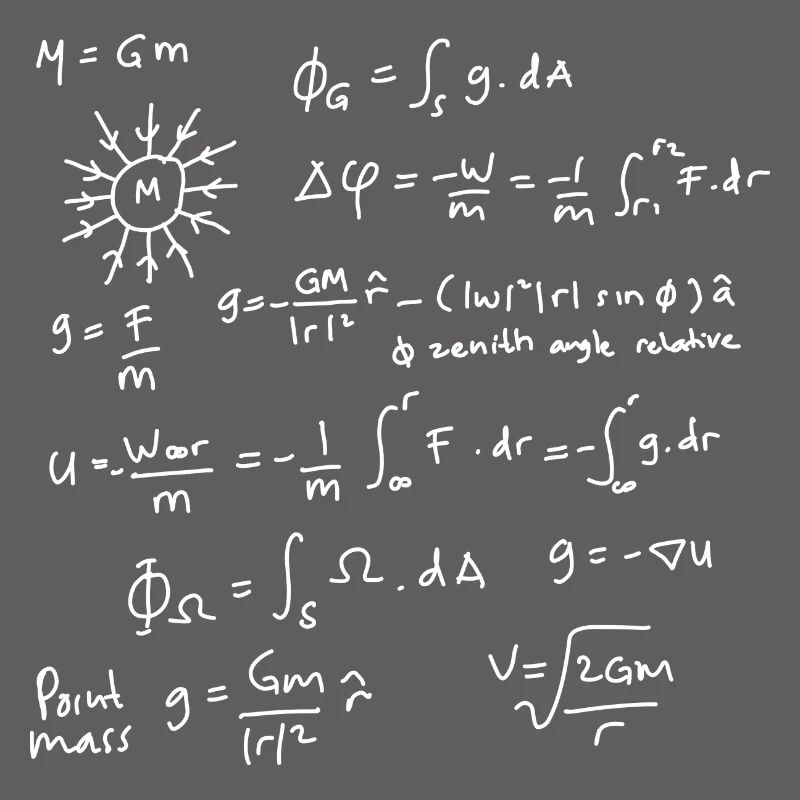 M = Gm
ϕ_G = ∫_S g . dA
M
Δφ = -W/m = -1/m ∫_{r1}^{r2} F . dr
g = F/m
g = - GM/|r|² r̂ - (|w|²|r| sin ϕ) â
ϕ zenith angle relative
U = - W∞r/m = - 1/m ∫_∞^r F . dr = - ∫_∞^r g . dr
Φ_Ω = ∫_S Ω . dA
g = -∇U
Point mass g = Gm/|r|² r̂
V = √(2GM/r)